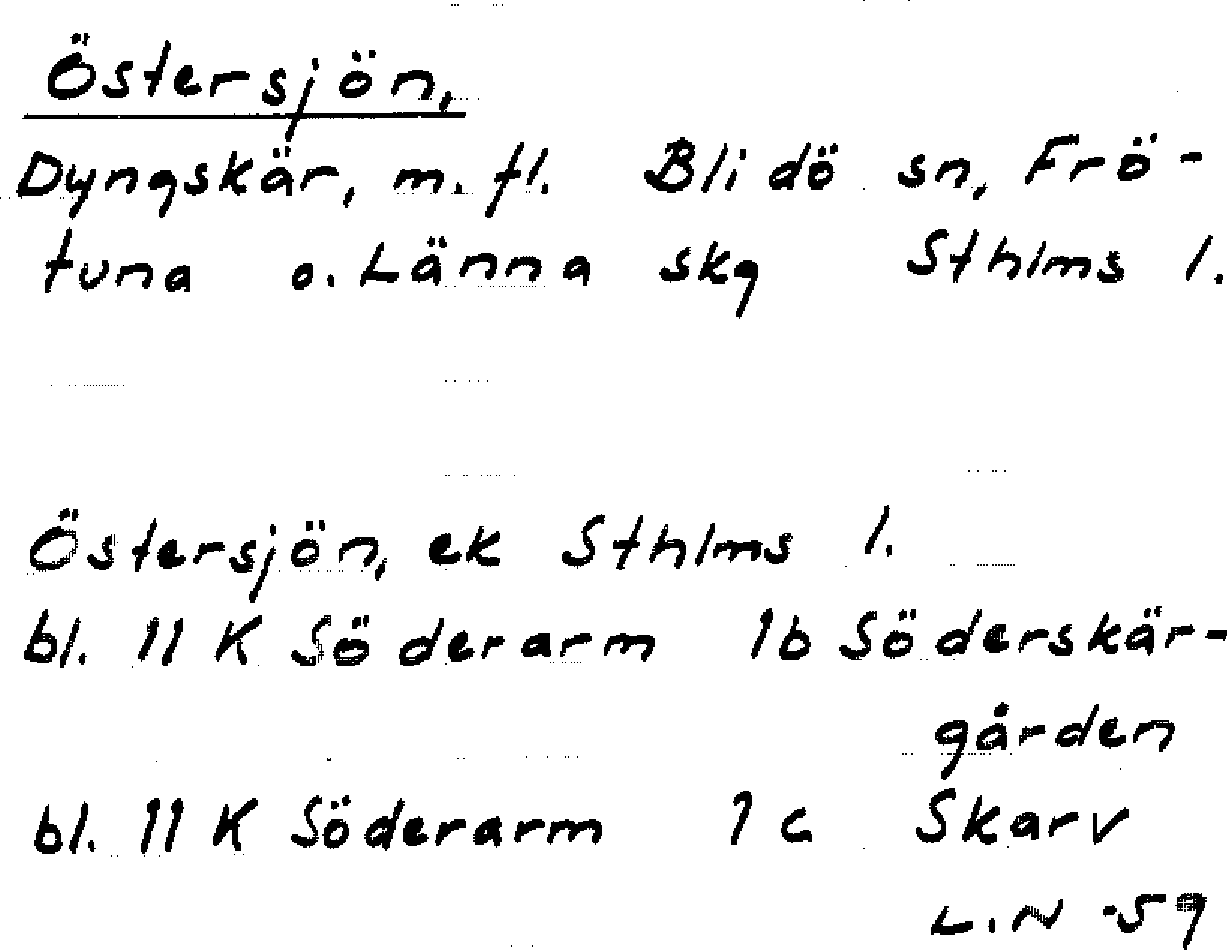 Östersjön,
Dyngskär, m. fl. Blidö sn, Frö-
tuna o. Länna skg Sthlms l.
Östersjön, ek Sthlms l.
bl. 11 K Söderarm 1b Söderskär-
gården
bl. 11 K Söderarm 1c Skarv
L.N -59